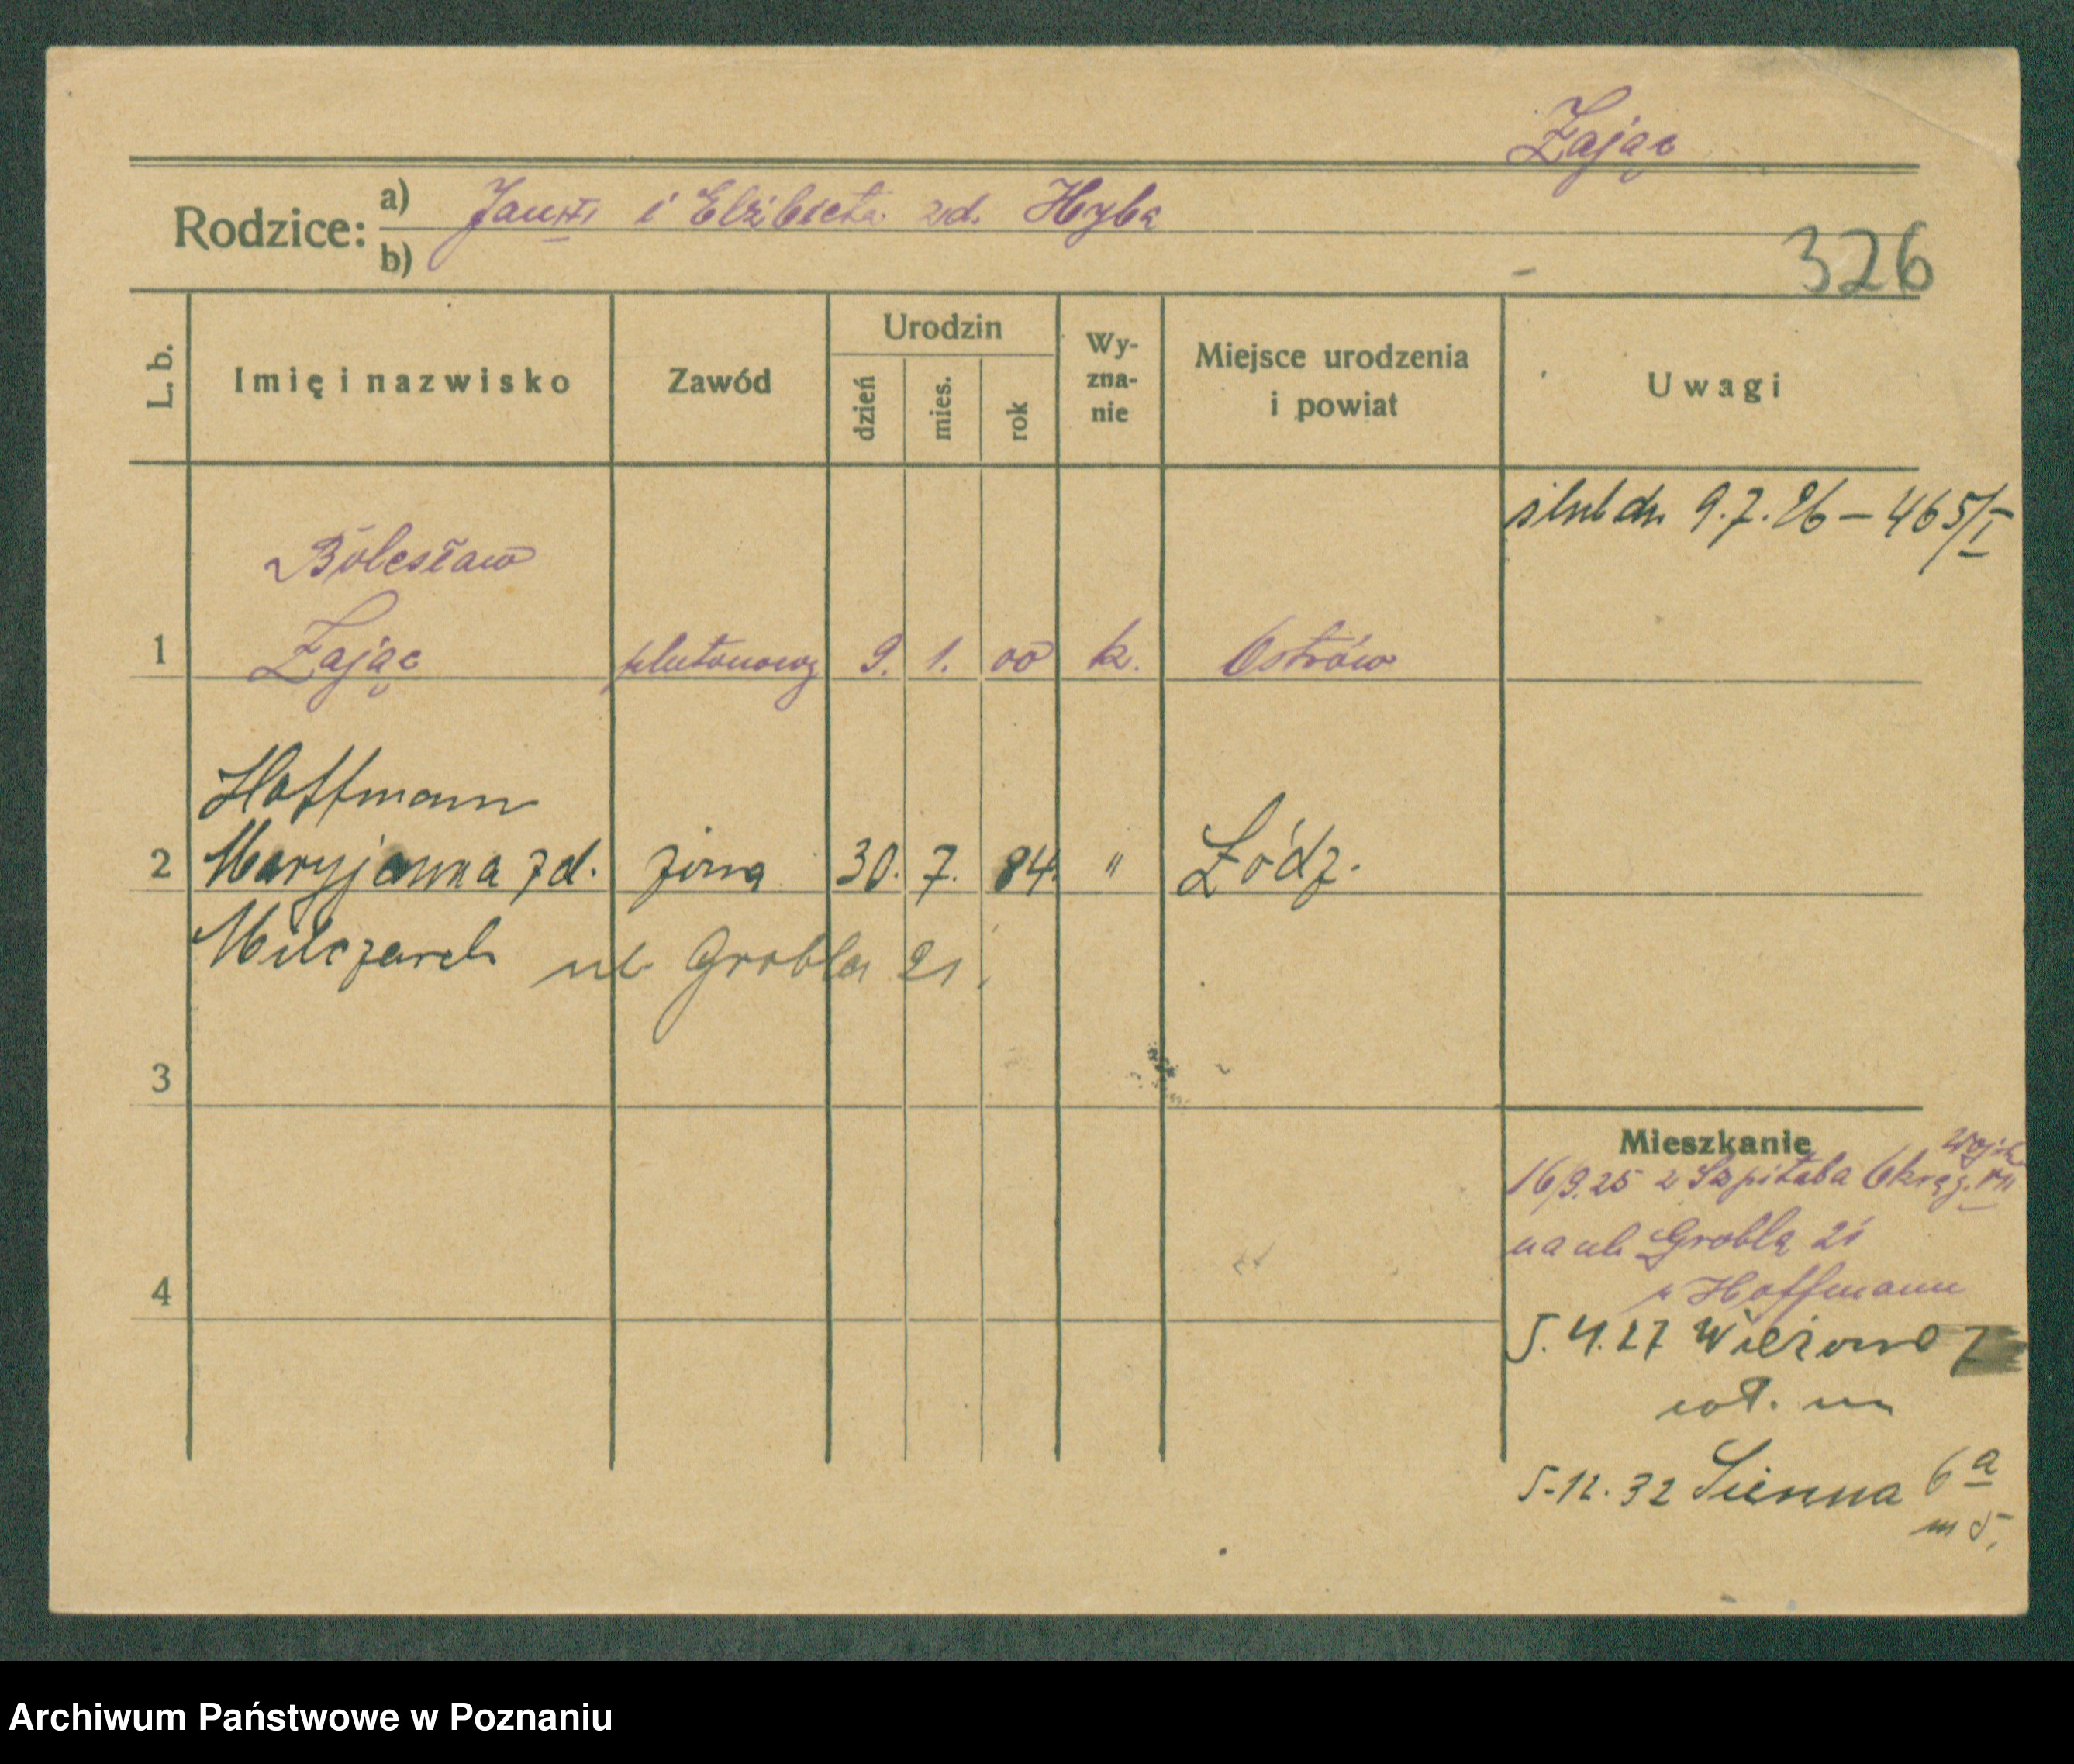 Zając
Rodzice:
a) i Elżbieta zd. Hyba
b)
326
L. b.
Imię i nazwisko
Zawód
Urodzin
dzień
mies.
rok
Wy-
zna-
nie
Miejsce urodzenia
i powiat
Uwagi
ślub dn. 9.7.26 – 465/I
Bolesław
1 Zając plutonowy 9. 1. 00 k. Ostrów
Hoffmann
2 Maryjanna zd. żona 30. 7. 84. " Łódź.
Milczarek ul. Grobla 21.
3
4
Mieszkanie
16/9.25 z Szpitala Okręg. VII
na ul. Grobla 21
u Hoffmann
5.4.27 7
5.12.32 Sienna 6a
m 5.
Archiwum Państwowe w Poznaniu